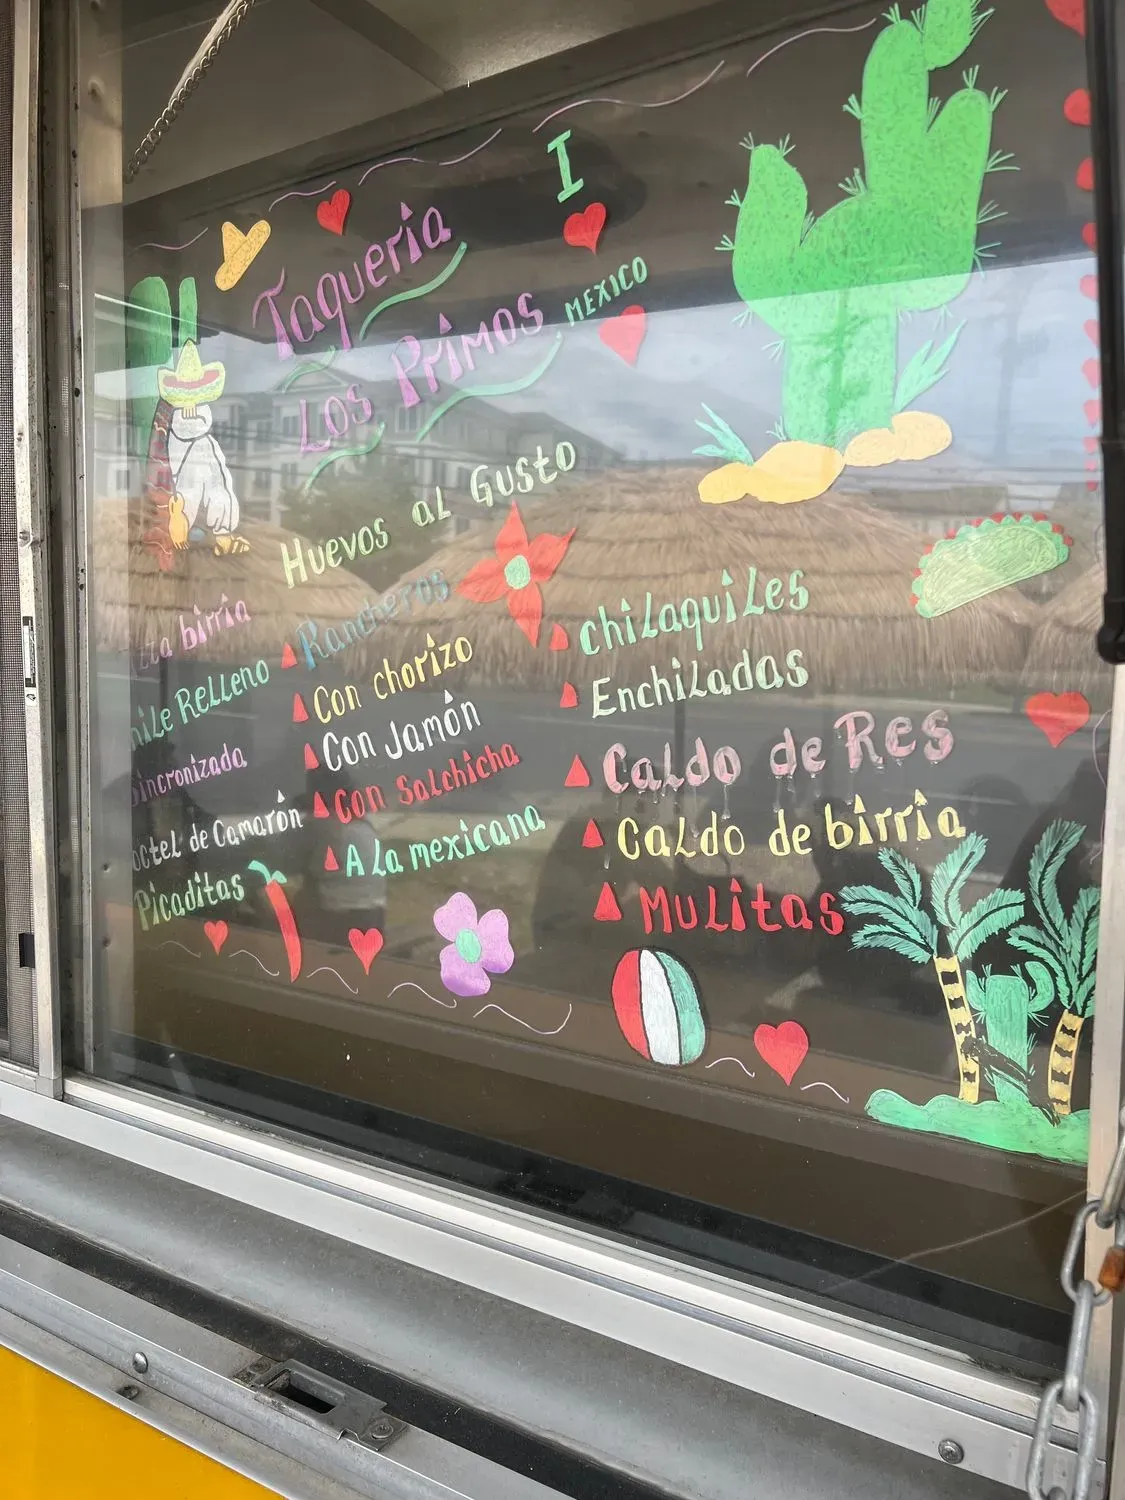 I
MEXICO
Taqueria
Los Primos
Huevos al Gusto
birria
Relleno
Sincronizada
de Camarón
Picaditas
Rancheros
Con chorizo
Con Jamón
Con Salchicha
A La mexicana
Chilaquiles
Enchiladas
Caldo de Res
Caldo de birria
Mulitas